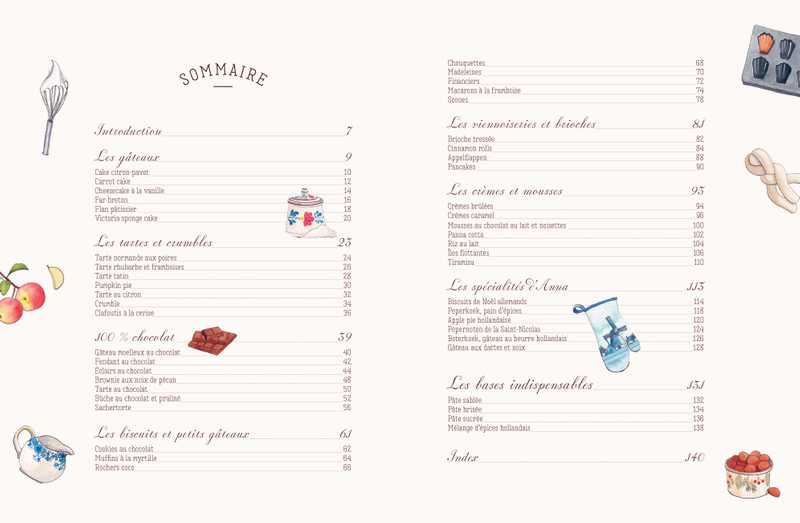 SOMMAIRE
Introduction 7
Les gâteaux 9
Cake citron-pavot 10
Carrot cake 12
Cheesecake à la vanille 14
Far breton 16
Flan pâtissier 18
Victoria sponge cake 20
Les tartes et crumbles 23
Tarte normande aux poires 24
Tarte rhubarbe et framboises 26
Tarte tatin 28
Pumpkin pie 30
Tarte au citron 32
Crumble 34
Clafoutis à la cerise 36
100 % chocolat 39
Gâteau moelleux au chocolat 40
Fondant au chocolat 42
Éclairs au chocolat 44
Brownie aux noix de pécan 48
Tarte au chocolat 50
Bûche au chocolat et praliné 52
Sachertorte 56
Les biscuits et petits gâteaux 61
Cookies au chocolat 62
Muffins à la myrtille 64
Rochers coco 66
Chouquettes 68
Madeleines 70
Financiers 72
Macarons à la framboise 74
Scones 78
Les viennoiseries et brioches 81
Brioche tressée 82
Cinnamon rolls 84
Appelflappen 88
Pancakes 90
Les crèmes et mousses 93
Crèmes brûlées 94
Crèmes caramel 96
Mousses au chocolat au lait et noisettes 100
Panna cotta 102
Riz au lait 104
Îles flottantes 106
Tiramisu 110
Les spécialités d'Anna 113
Biscuits de Noël allemands 114
Peperkoek, pain d'épices 118
Apple pie hollandaise 120
Pepernoten de la Saint-Nicolas 124
Boterkoek, gâteau au beurre hollandais 126
Gâteau aux dattes et noix 128
Les bases indispensables 131
Pâte sablée 132
Pâte brisée 134
Pâte sucrée 136
Mélange d'épices hollandais 138
Index 140